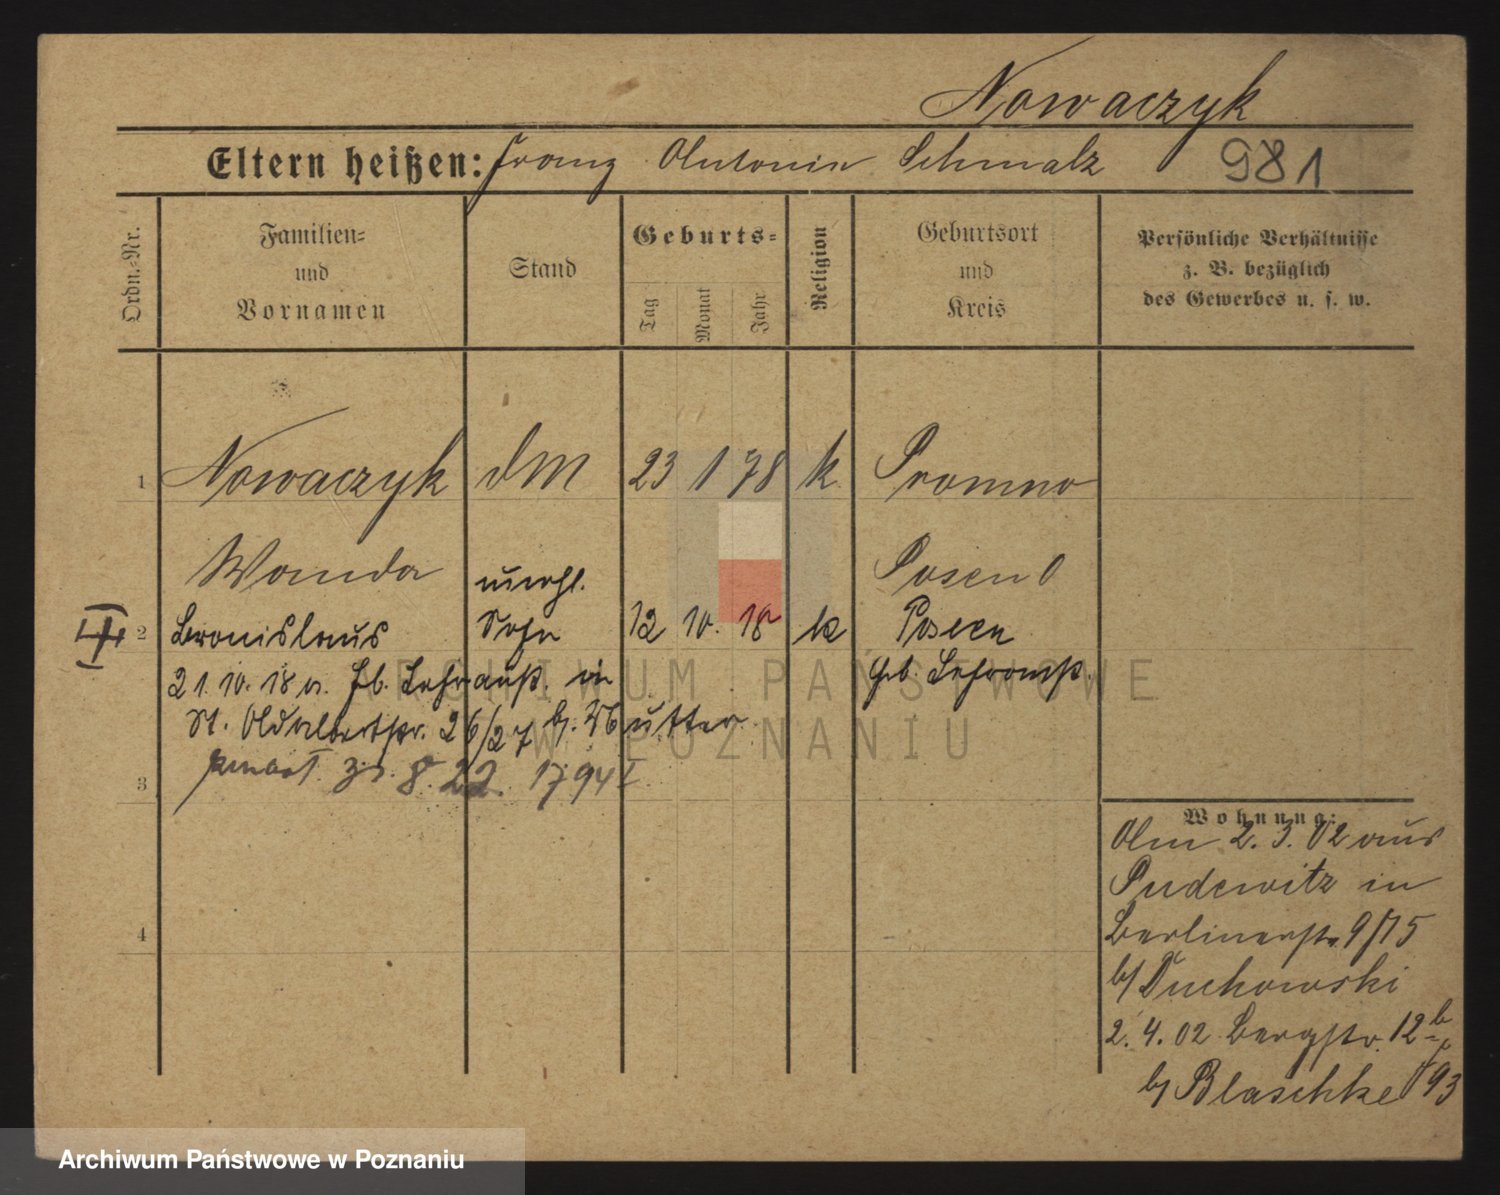 Nowaczyk
Eltern heißen: Franz Antonie Schmalz 981
Ordn.-Nr.
Familien-
und
Vornamen
Stand
Geburts-
Tag
Monat
Jahr
Religion
Geburtsort
und
Kreis
Persönliche Verhältnisse
z. B. bezüglich
des Gewerbes u. s. w.
1 Nowaczyk DM 23 1 78 k Promno
Wanda Posen O
unehl.
2 Bronislaus Sohn 12 10. 18 k Posen
21. 10. 18 a. in
St. Adalbertstr. 26/27 b. Mutter
zmarł 8. 22. 1794 I
3
4
Wohnung:
Am 2. 3. 02 aus
Pudewitz in
Berlinerstr. 9/75
b/ Duchowski
2. 4. 02 Bergstr. 12b
b/ Blaschke 93
ARCHIWUM PAŃSTWOWE
W POZNANIU
Archiwum Państwowe w Poznaniu